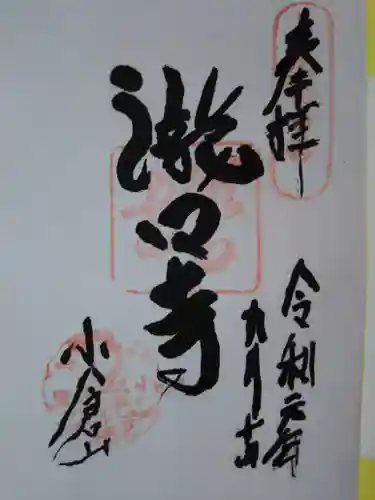 奉拝
令和元年
九月
瀧口寺
小倉山